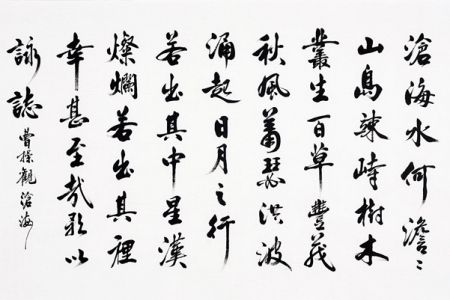 滄海水何澹〻
山島竦峙樹木
叢生百草豐茂
秋風蕭瑟洪波
涌起日月之行
若出其中星漢
燦爛若出其裡
幸甚至哉歌以
詠誌 曹操觀滄海